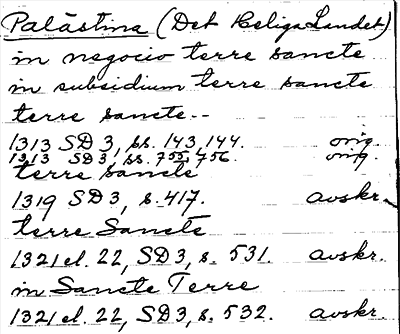 Palästina (Det Heliga Landet)
in negocio terre sancte
in subsidium terre sancte
terre sancte--
1313 SD 3, ss. 143, 144. orig.
1313 SD 3, ss. 755, 756. orig.
terre sancte
1319 SD 3, s. 417. avskr.
terre Sancte
1321 el. 22, SD 3, s. 531. avskr.
in Sancte Terre
1321 el. 22, SD3, s. 532. avskr.